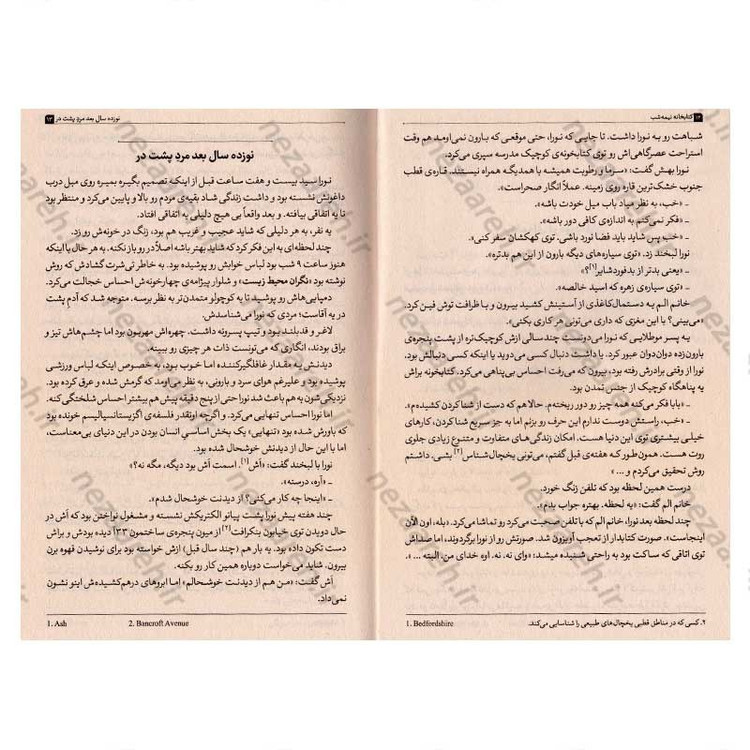 ۱۲ کتابخانه نیمه‌شب
شباهت رو به نورا داشت. تا جایی که نورا، حتی موقعی که بارون نمی‌اومد هم وقت
استراحت عصرگاهی‌اش رو توی کتابخونه‌ی کوچیک مدرسه سپری می‌کرد.
نورا بهش گفت: «سرما و رطوبت همیشه با همدیگه همراه نیستند. قاره‌ی قطب
جنوب خشک‌ترین قاره روی زمینه. عملاً انگار صحراست».
ـ «خب، به نظر میاد باب میل خودت باشه».
ـ «فکر نمی‌کنم به اندازه‌ی کافی دور باشه».
ـ «خب پس شاید باید فضا نورد باشی. توی کهکشان سفر کنی».
نورا لبخند زد. «توی سیاره‌های دیگه بارون از این هم بدتره».
ـ «یعنی بدتر از بدفوردشایر[۱]؟»
ـ «توی سیاره‌ی زهره که اسید خالصه».
خانم الم یه دستمال‌کاغذی از آستینش کشید بیرون و با ظرافت توش فین کرد.
«می‌بینی؟ با این مغزی که داری می‌تونی هر کاری بکنی».
یه پسر موطلایی که نورا می‌دونست چند سالی ازش کوچیک‌تره از پشت پنجره‌ی
بارون‌زده دوان‌دوان عبور کرد. یا داشت دنبال کسی می‌دوید یا اینکه کسی دنبالش بود.
نورا از وقتی برادرش رفته بود، بیرون که می‌رفت احساس بی‌پناهی می‌کرد. کتابخونه براش
یه پناهگاه کوچیک از جنس تمدن بود.
ـ «بابا فکر می‌کنه همه چیز رو دور ریخته‌م. حالا هم که دست از شنا کردن کشیده‌م».
ـ «خب، راستش دوست ندارم این حرف رو بزنم اما به جز سریع شناکردن، کارهای
خیلی بیشتری توی این دنیا هست. امکان زندگی‌های متفاوت و متنوع زیادی جلوی
روت هست. همون‌طور که هفته‌ی قبل گفتم، می‌تونی یخچال‌شناس[۲] بشی. داشتم
روش تحقیق می‌کردم و ... »
درست همین لحظه بود که تلفن زنگ خورد.
خانم الم گفت: «یه لحظه. بهتره جواب بدم».
چند لحظه بعد نورا، خانم الم که با تلفن صحبت می‌کرد رو تماشا می‌کرد. «بله، اون الآن
اینجاست». صورت کتابدار از تعجب آویزون شد. صورتش رو از نورا برگردوند، اما صداش
توی اتاقی که ساکت بود به راحتی شنیده میشد: «وای نه. نه. اوه خدای من. البته ... ».
1. Bedfordshire
۲. کسی که در مناطق قطبی یخچال‌های طبیعی را شناسایی می‌کند.
نوزده سال بعد مردِ پشت در ۱۳
نوزده سال بعد مردِ پشت در
نورا سید بیست و هفت ساعت قبل از اینکه تصمیم بگیره بمیره روی مبل درب
داغونش نشسته بود و داشت زندگی شاد بقیه‌ی مردم رو بالا و پایین می‌کرد و منتظر بود
تا یه اتفاقی بیافته. و بعد واقعاً بی هیچ دلیلی یه اتفاقی افتاد.
یه نفر، به هر دلیلی که شاید عجیب و غریب هم بود، زنگ در خونه‌ش رو زد.
چند لحظه‌ای به این فکر کرد که شاید بهتر باشه اصلاً در رو باز نکنه. به هر حال با اینکه
هنوز ساعت ۹ شب بود لباس خوابش رو پوشیده بود. به خاطر تی‌شرت گشادش که روش
نوشته بود «نگران محیط زیست» و شلوار پیژامه‌ی چهارخونه‌ش احساس خجالت می‌کرد.
دمپایی‌هاش رو پوشید تا یه کوچولو متمدن‌تر به نظر برسه. متوجه شد که آدم پشت
در یه آقاست؛ مردی که نورا می‌شناسدش.
لاغر و قدبلند بود و تیپ پسرونه داشت. چهره‌اش مهربون بود اما چشم‌هاش تیز و
براق بودند، انگاری که می‌تونست ذات هر چیزی رو ببینه.
دیدنش یه مقدار غافلگیرکننده اما خوب بود، به خصوص اینکه لباس ورزشی
پوشیده بود و علیرغم هوای سرد و بارونی، به نظر می‌اومد که گرمش شده و عرق کرده بود.
نزدیکی‌شون به هم باعث شد نورا حتی از پنج دقیقه پیش هم بیشتر احساس شلختگی کنه.
اما نورا احساس تنهایی می‌کرد. و اگرچه اونقدر فلسفه‌ی اگزیستانسیالیسم خونده بود
که باورش شده بود «تنهایی» یک بخش اساسیِ انسان بودن در این دنیای بی‌معناست،
اما با این حال از دیدنش خوشحال شده بود.
نورا با لبخند گفت: «اَش[۱]. اسمت اَش بود دیگه، مگه نه؟»
ـ «آره، درسته».
ـ «اینجا چه کار می‌کنی؟ از دیدنت خوشحال شدم».
چند هفته پیش نورا پشت پیانو الکتریکش نشسته و مشغول نواختن بود که اَش در
حال دویدن توی خیابون بنکرافت[۲] از میون پنجره‌ی ساختمون ۱۳۳ دیده بودش و براش
دست تکون داده بود. یه بار هم (چند سال قبل) ازش خواسته بود برای نوشیدن قهوه برن
بیرون. شاید می‌خواست دوباره همین کار رو بکنه.
اَش گفت: «من هم از دیدنت خوشحالم» اما ابروهای درهم‌کشیده‌ش اینو نشون
نمی‌داد.
1. Ash
2. Bancroft Avenue
nezaareh.ir